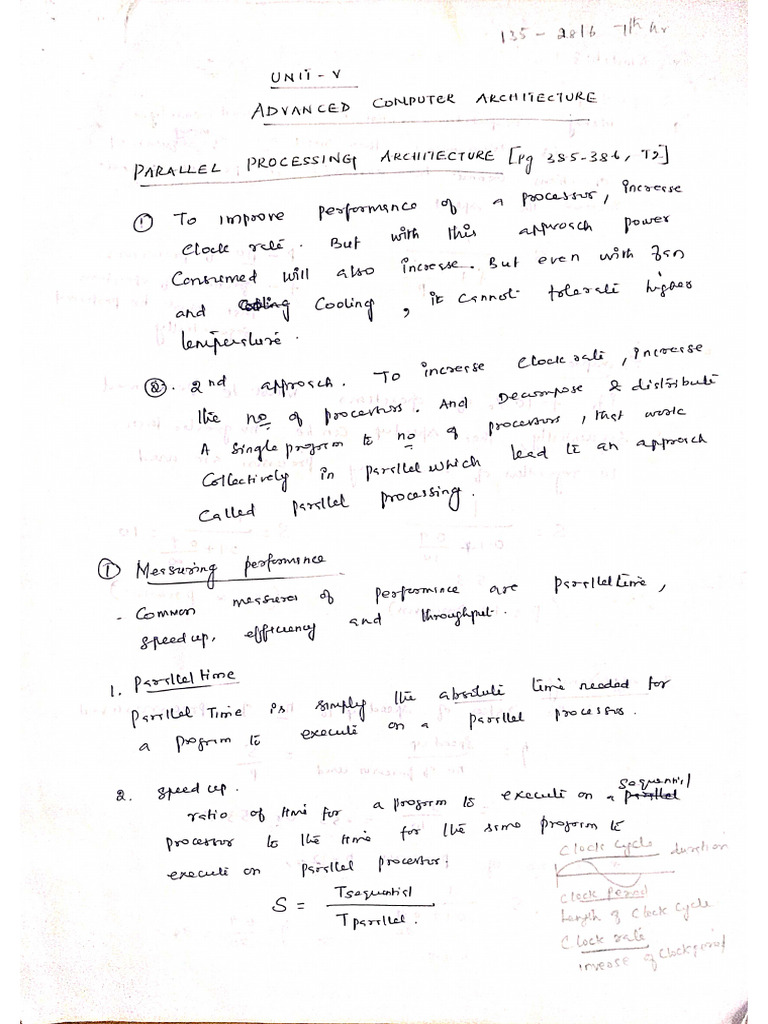 135 - 28/6 - 7th hr
UNIT - V
ADVANCED COMPUTER ARCHITECTURE
PARALLEL PROCESSING ARCHITECTURE [Pg 385-386, T2]
① To improve performance of a processor, increase
Clock rate. But with this approach power
Consumed will also increase. But even with fan
and Cooling Cooling, it cannot tolerate higher
temperature.
②. 2nd approach. To increase Clock rate, increase
the no of processors. And Decompose & distribute
A single program to no of processors, that work
Collectively in parallel which lead to an approach
Called parallel processing.
① Measuring performance
- Common measures of performance are parallel time,
speed up, efficiency and throughput.
1. Parallel time
Parallel Time is simply the absolute time needed for
a program to execute on a parallel processor.
2. speed up.
ratio of time for a program to execute on a parallel sequential
processor to the time for the same program to
execute on parallel processor.
S = Tsequential
Tparallel.
Clock Cycle duration
Clock period
Length of Clock Cycle
Clock rate
inverse of Clock period